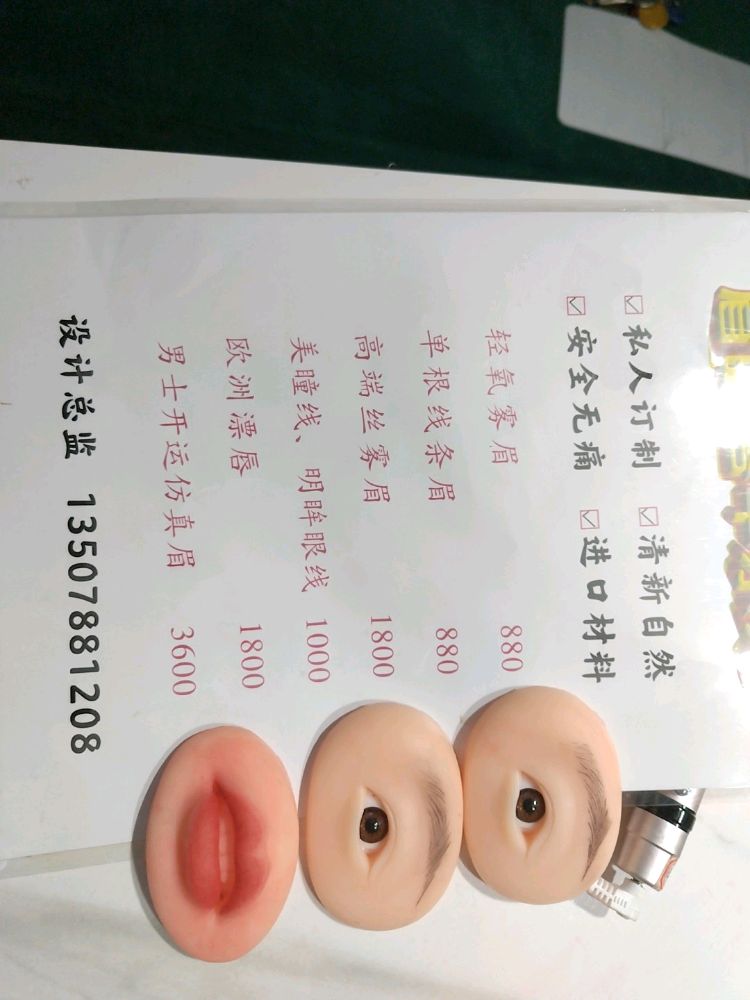 ☑私人订制 ☑清新自然
☑安全无痛 ☑进口材料
轻氧雾眉 880
单根线条眉 880
高端丝雾眉 1800
美瞳线、明眸眼线 1000
欧洲漂唇 1800
男士开运仿真眉 3600
设计总监 13507881208